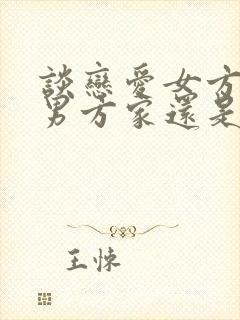 談戀愛女方
男方家還是
王悚